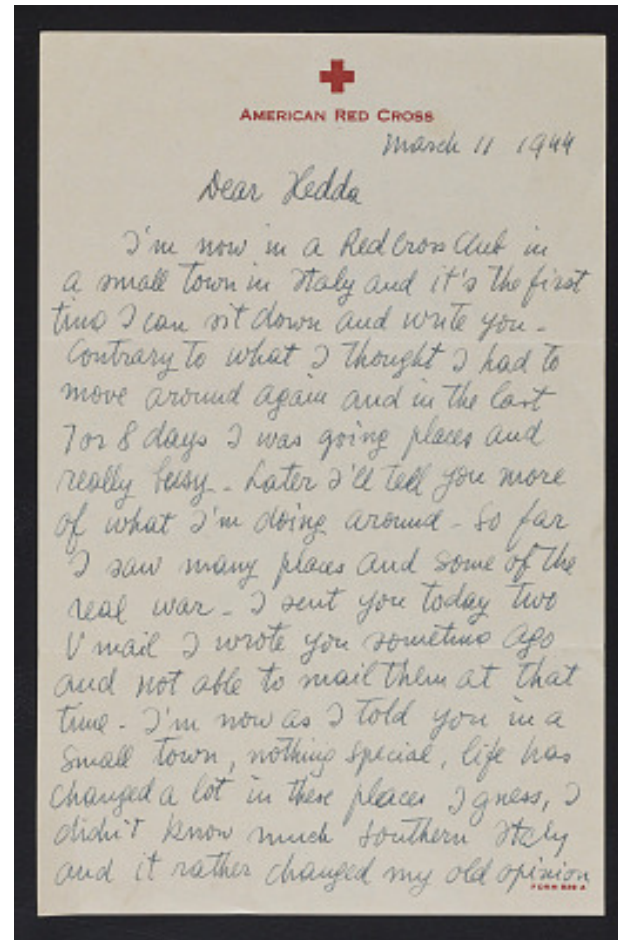 AMERICAN RED CROSS
March 11 1944
Dear Hedda
I'm now in a Red Cross Club in
a small town in Italy and it's the first
time I can sit down and write you -
Contrary to what I thought I had to
move around again and in the last
7 or 8 days I was going places and
really busy - Later I'll tell you more
of what I'm doing around - So far
I saw many places and some of the
real war - I sent you today two
V mail I wrote you sometime ago
and not able to mail them at that
time - I'm now as I told you in a
small town, nothing special, life has
changed a lot in these places I guess, I
didn't know much southern Italy
and it rather changed my old opinion
FORM 539 A